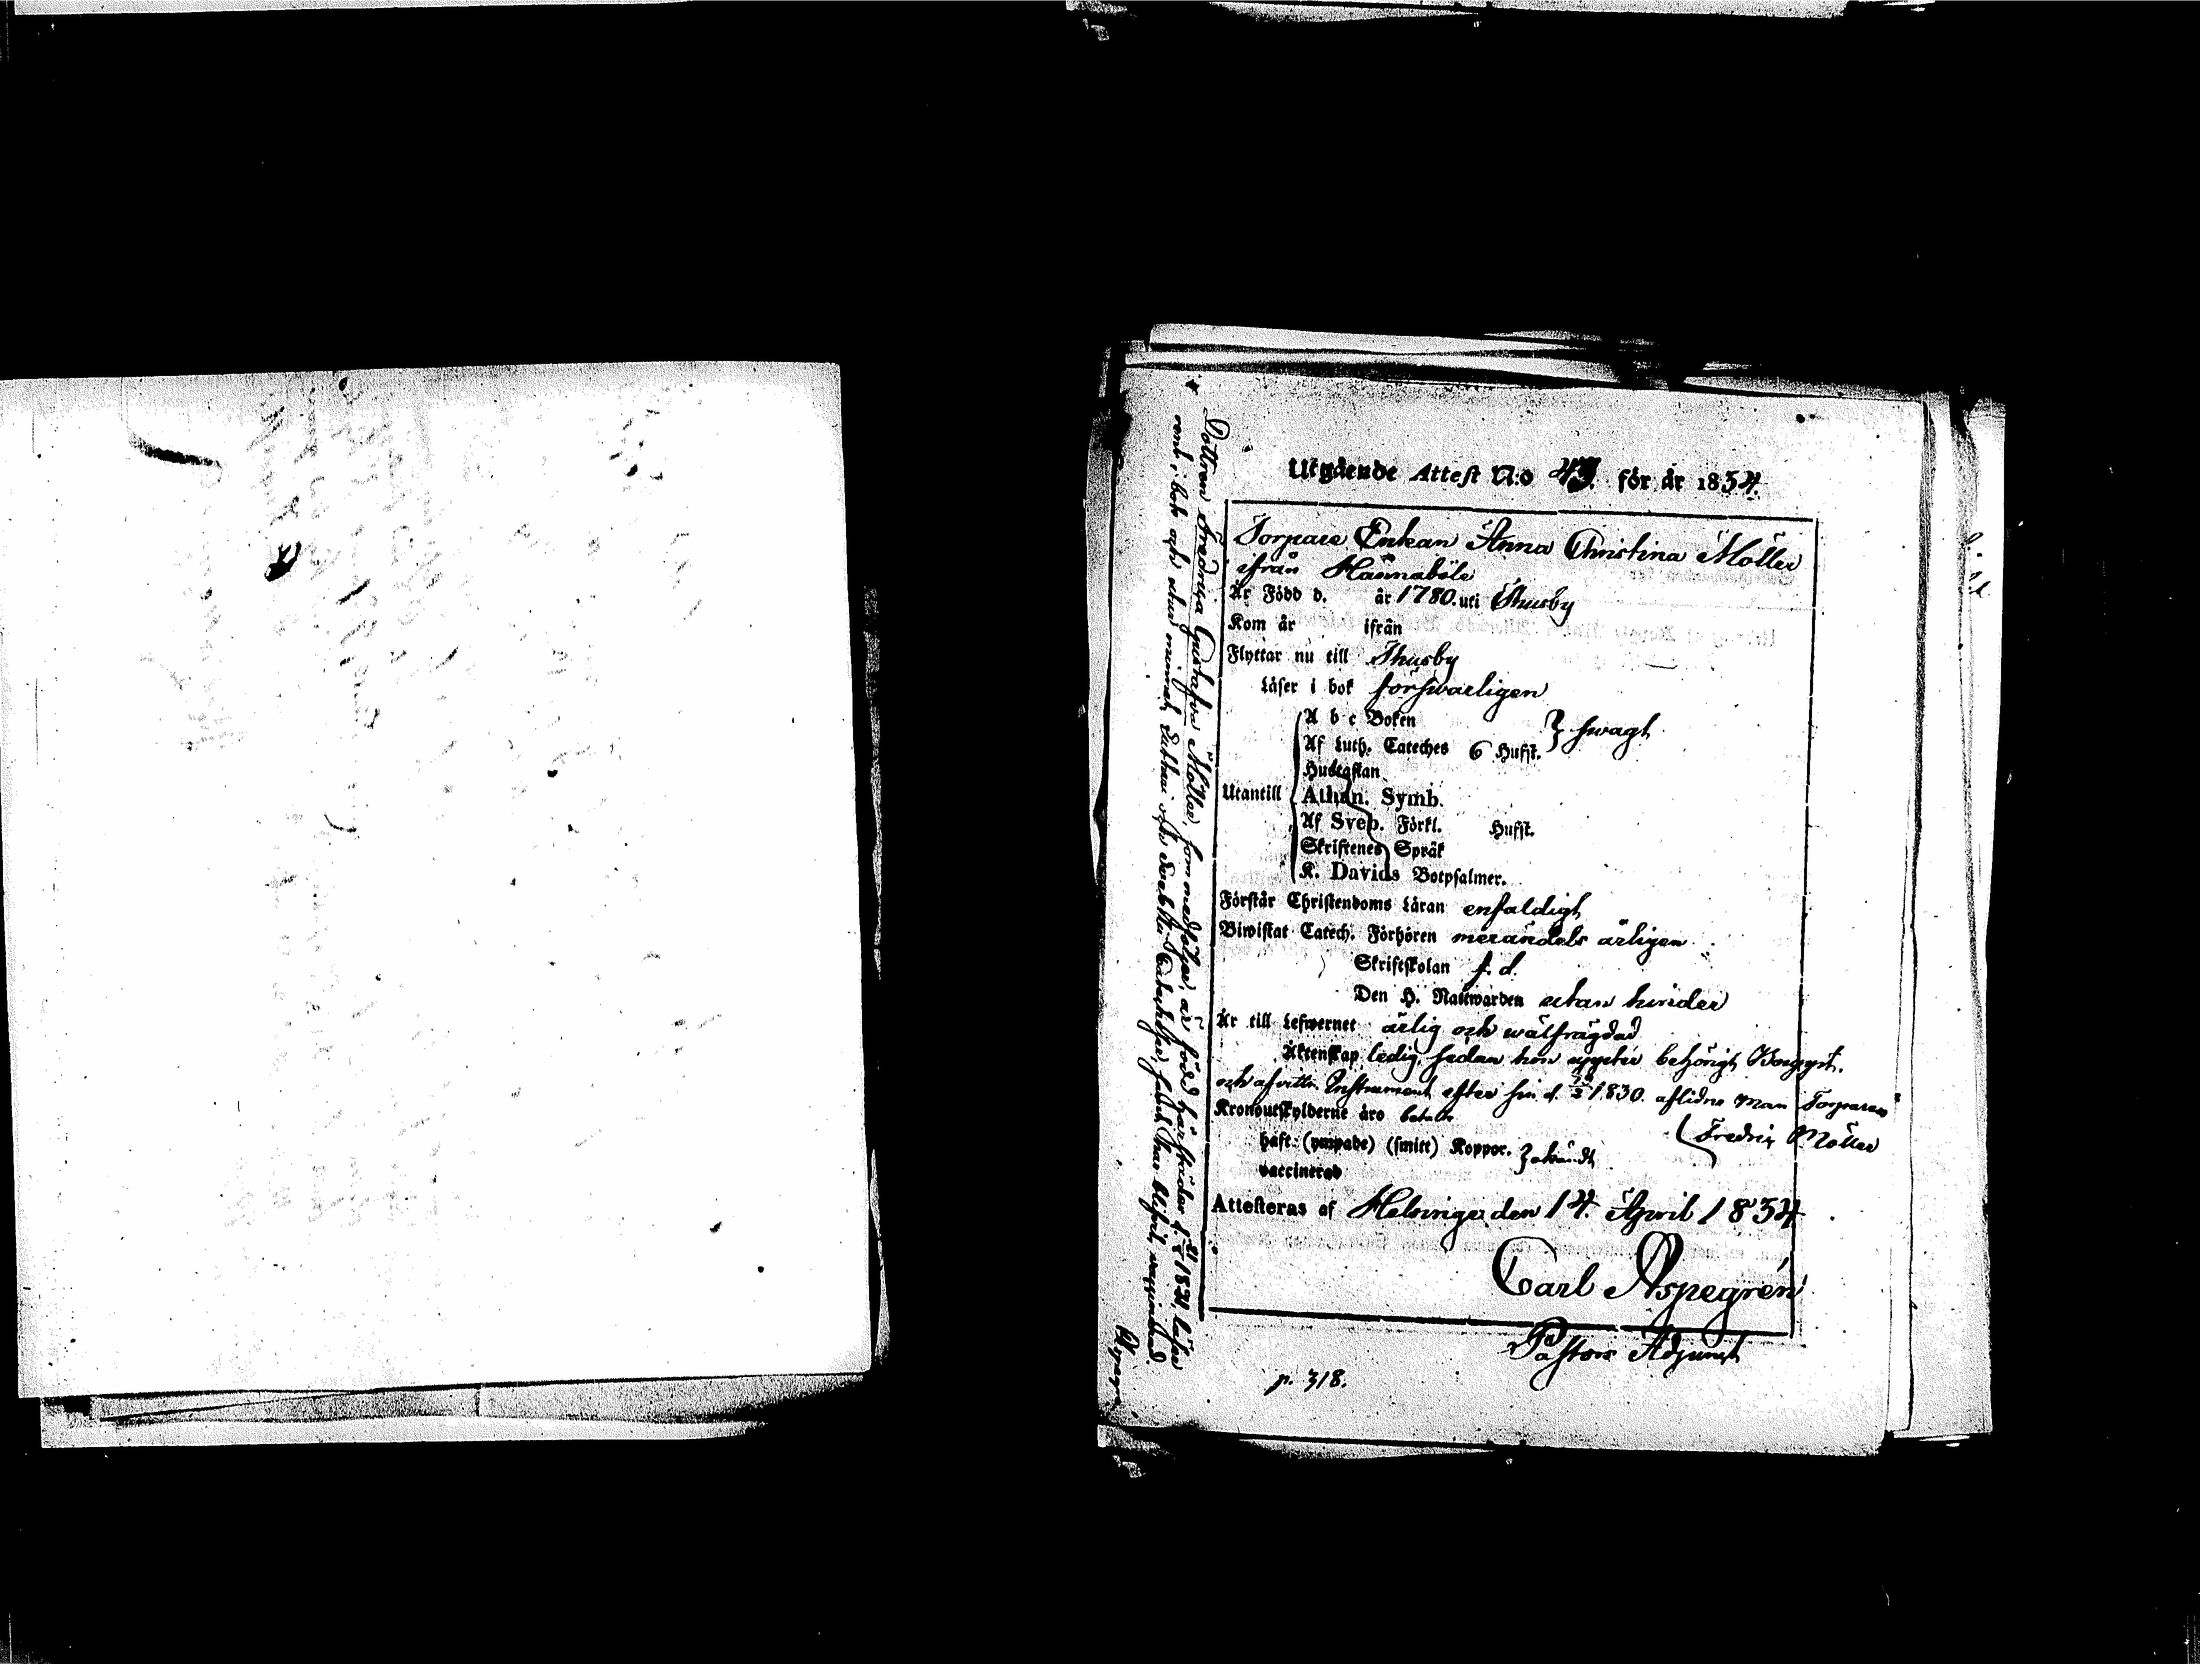 Utgående Attest N:o 43. för år 1834.
Torpare Enkan Anna Christina Möller
ifrån Hannaböle
Är Född d. år 1780. uti Thusby
Kom år ifrån
Flyttar nu till Thusby
Läser i bok förswarligen
Utantill
A b c Boken
Af Luth. Cateches 6 Hufst. } swagt
Hustaflan
Athan. Symb.
Af Sveb. Förkl. Hufst.
Skriftenes Språk
K. Davids Botpsalmer.
Förstår Christendoms Läran enfaldigt
Biwistat Catech. Förhören merändels årligen
Skriftskolan f. d.
Den H. Nattwarden utan hinder
Är till Lefwernet ärlig och wälfrägdad
Äktenskap ledig, sedan hon upptér behörigt
och afvittr. Instrument efter sin d. 1830. aflidne man Torparen
Fredric Möller
Kronoutskylderne äro betalte
haft (ympade) (smitt) Koppor.
vaccinerad
Attesteras af Helsinge den 14. April 1834
Carl Aspegrén
Pastors Adjunct
p. 318.
Dottren Fredrica Gustafva Möller, som medföljer, är född härstädes d. 1821, läser
rent i bok och utur minnet Lutheri och Svebilii Catecheser, vaccinerad.
Aspegrén